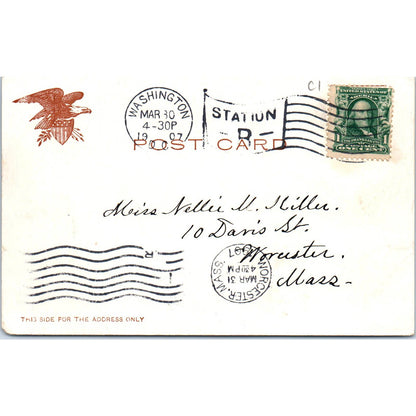 C1
WASHINGTON
MAR 30
4-30P
1907
D.C.
STATION
B
POST CARD
ONE CENT
Miss Nellie M. Miller.
10 Davis St.
Worcester.
Mass.
WORCESTER, MASS.
MAR 31
4 30 PM
1907
R
1
THIS SIDE FOR THE ADDRESS ONLY